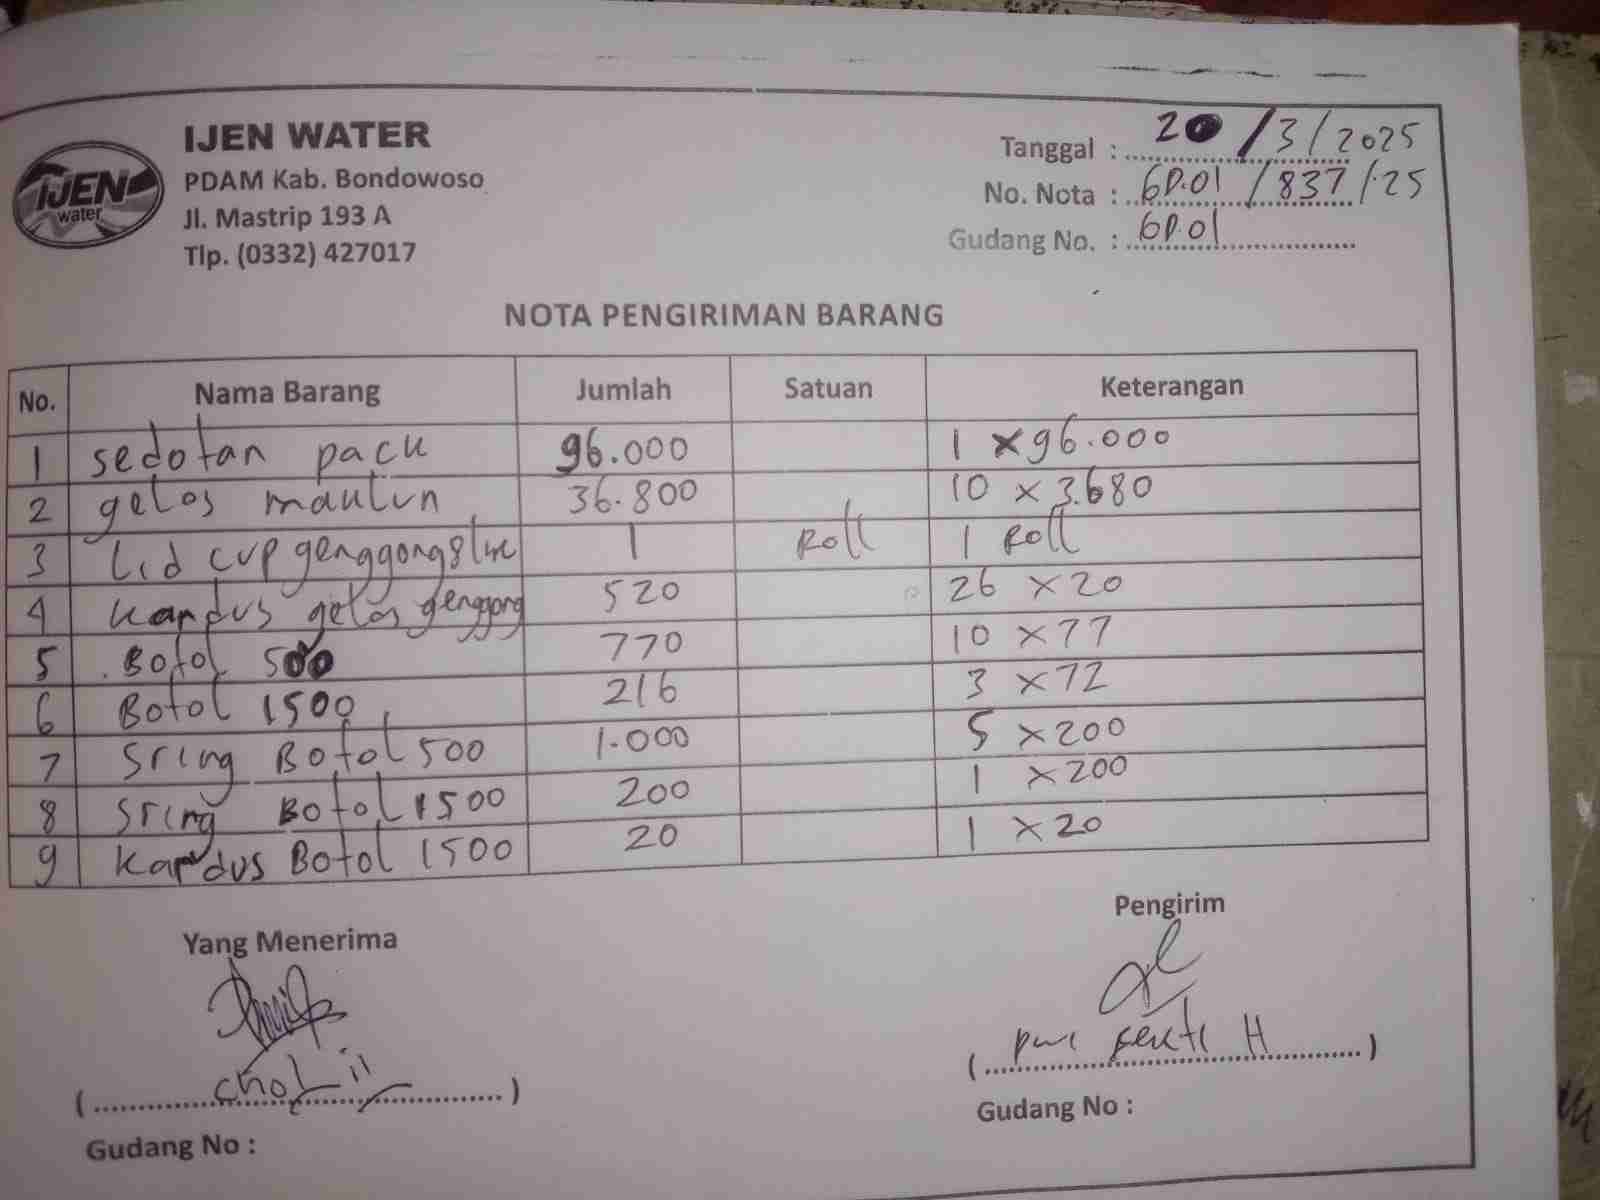 IJEN water
IJEN WATER
PDAM Kab. Bondowoso
Jl. Mastrip 193 A
Tlp. (0332) 427017
Tanggal : 20/3/2025
No. Nota : GD.01/837/25
Gudang No. : GD.01
NOTA PENGIRIMAN BARANG
No. Nama Barang Jumlah Satuan Keterangan
1 sedotan pacu 96.000 1 x 96.000
2 gelas 36.800 10 x 3.680
3 Lid cup genggong 1 Roll 1 Roll
4 kardus gelas genggong 520 26 x 20
5 Botol 500 770 10 x 77
6 Botol 1500 216 3 x 72
7 Sring Botol 500 1.000 5 x 200
8 Sring Botol 1500 200 1 x 200
9 Kardus Botol 1500 20 1 x 20
Yang Menerima
Pengirim
( )
( H )
Gudang No :
Gudang No :